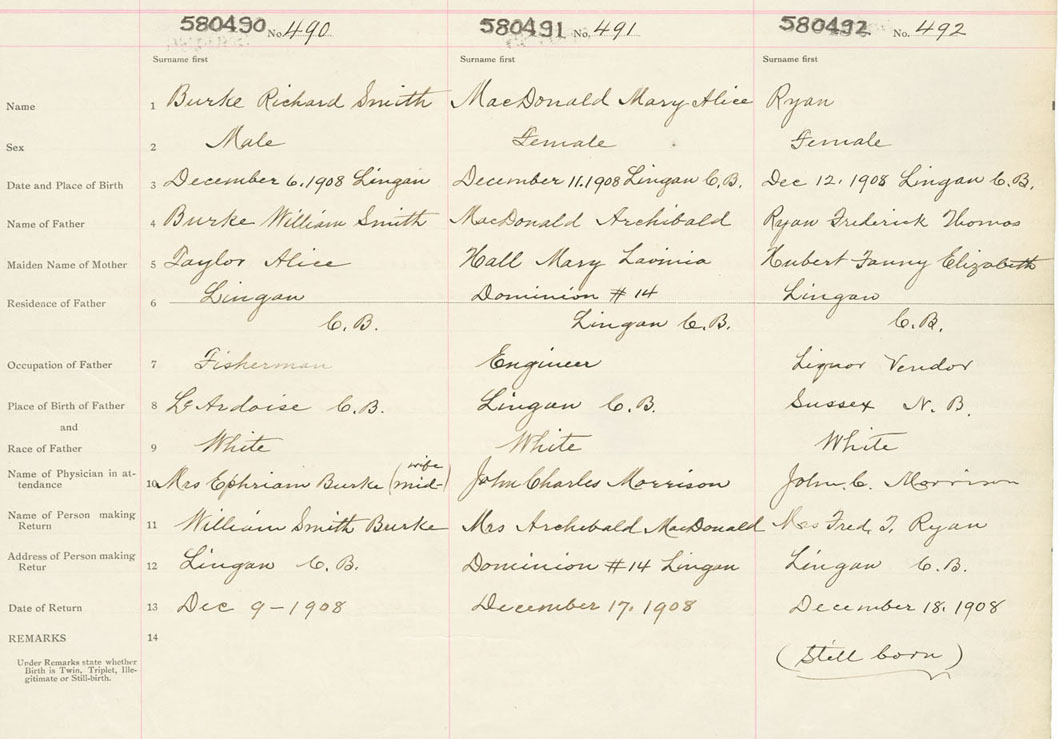 580490 No. 490 580491 No. 491 580492 No. 492
Surname first Surname first Surname first
Name 1 Burke Richard Smith MacDonald Mary Alice Ryan
Sex 2 Male Female Female
Date and Place of Birth 3 December 6, 1908 Lingan December 11, 1908 Lingan C.B. Dec 12, 1908 Lingan C.B.
Name of Father 4 Burke William Smith MacDonald Archibald Ryan Frederick Thomas
Maiden Name of Mother 5 Taylor Alice Hall Mary Lavinia Hubert Fanny Elizabeth
Residence of Father 6 Lingan Dominion # 14 Lingan
C.B. Lingan C.B. C.B.
Occupation of Father 7 Fisherman Engineer Liquor Vendor
Place of Birth of Father 8 L'Ardoise C.B. Lingan C.B. Sussex N.B.
and
Race of Father 9 White White White
Name of Physician in at-
tendance 10 Mrs Ephriam Burke (mid-wife) John Charles Morrison John. C. Morrison
Name of Person making
Return 11 William Smith Burke Mrs Archibald MacDonald Mrs Fred. T. Ryan
Address of Person making
Retur 12 Lingan C.B. Dominion #14 Lingan Lingan C.B.
Date of Return 13 Dec 9-1908 December 17, 1908 December 18, 1908
REMARKS 14
(Still born)
Under Remarks state whether
Birth is Twin, Triplet, Ille-
gitimate or Still-birth.